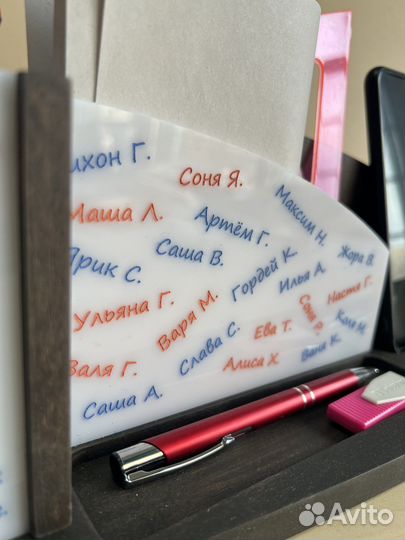 ихон Г.
Соня Я.
Маша Л.
Артём Г.
Максим Н.
Ярик С.
Саша В.
Гордей К.
Илья А.
Жора В.
Ульяна Г.
Варя М.
Настя Г.
Слава С.
Ева Т.
Соня Р.
Коля М.
Валя Г.
Алиса Х.
Ваня К.
Саша А.
Avito